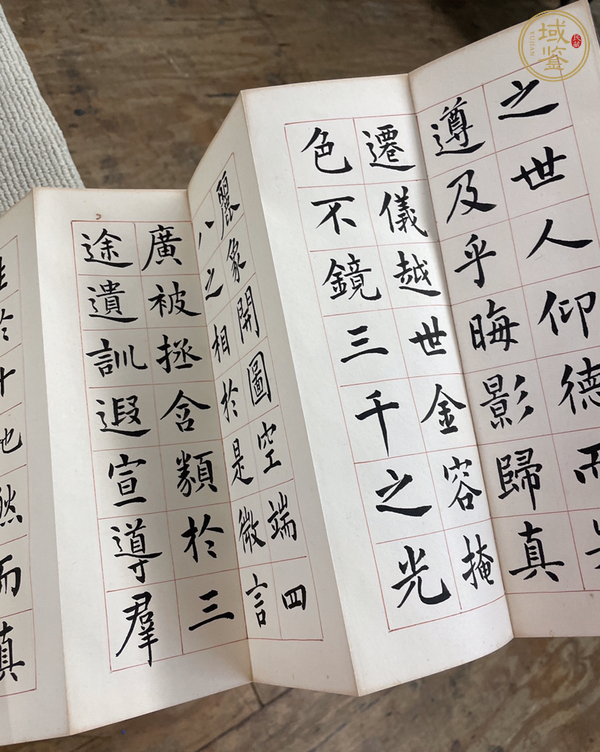 之世人仰德而
遵及乎晦影歸真
遷儀越世金容掩
色不鏡三千之光
麗象開圖空端四
八之相於是微言
廣被拯含類於三
途遺訓遐宣導羣
生於十地然而真
域鉴
YUJIAN